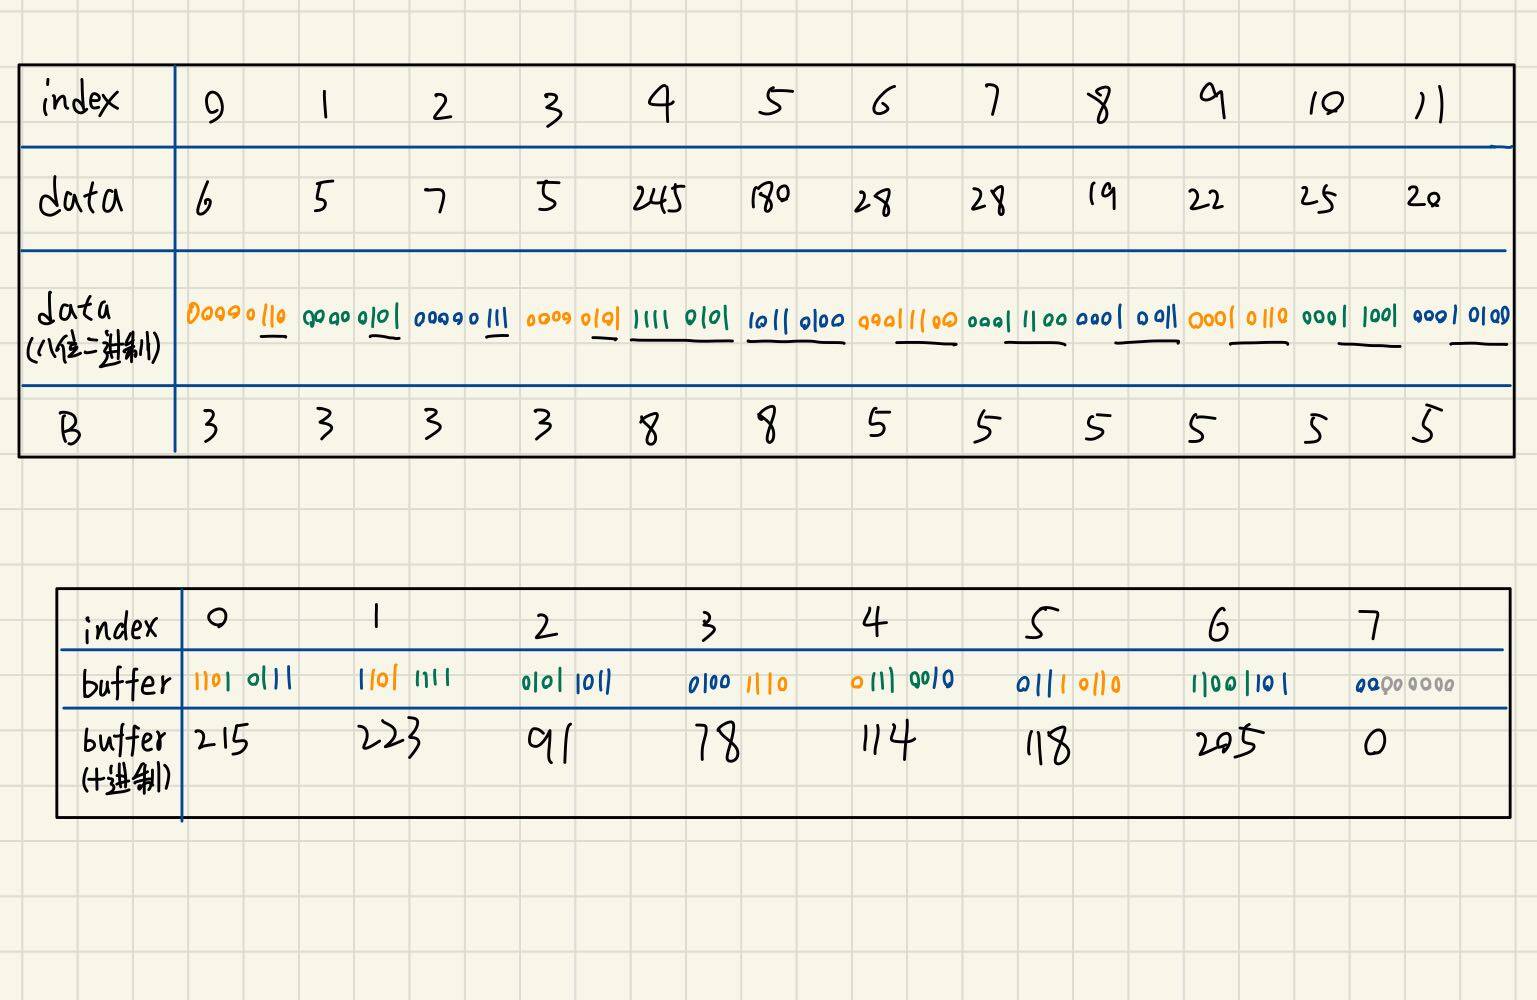 index 0 1 2 3 4 5 6 7 8 9 10 11
data 6 5 7 5 245 180 28 28 19 22 25 20
data 00000110 00000101 00000111 00000101 1111 0101 1011 0100 00011100 0001 1100 0001 0011 0001 0110 0001 1001 0001 0100
(八位二进制)
B 3 3 3 3 8 8 5 5 5 5 5 5
index 0 1 2 3 4 5 6 7
buffer 1101 0111 1101 1111 0101 1011 0100 1110 0111 0010 0111 0110 11001101 00000000
buffer 215 223 91 78 114 118 205 0
(十进制)